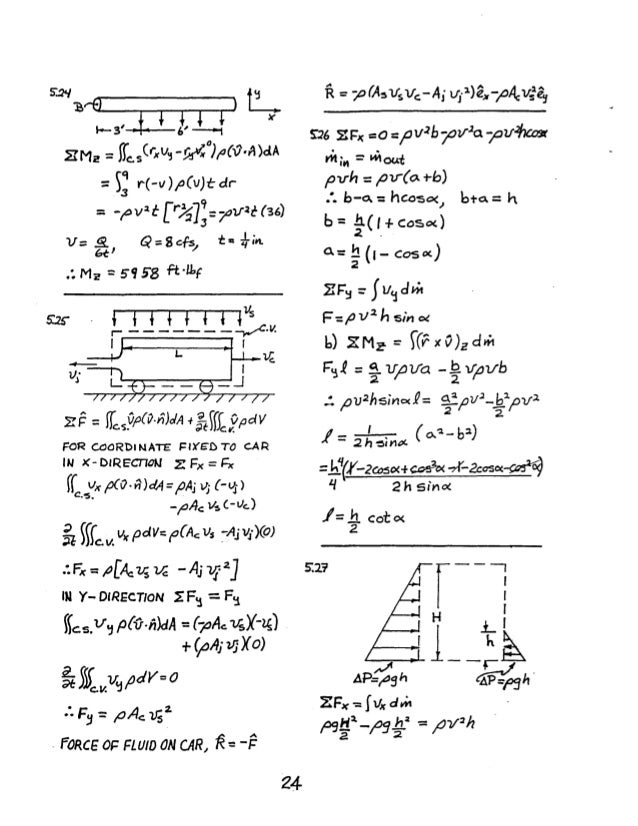 5.24
B
y
x
3'
6'
ΣM_z = ∬_c.s. (r_x v_y - r_y v_x^0) ρ(v̂·n̂)dA
= ∫_3^9 r(-v) ρ(v)t dr
= -ρv²t [r²/2]_3^9 = -ρv²t (36)
v = Q/6t, Q = 8 cfs, t = 1/4 in
∴ M_z = 5958 ft·lbf
5.25
v_s
C.V.
L
v_c
v_j
ΣF̂ = ∬_c.s. v̂ρ(v̂·n̂)dA + ∂/∂t ∭_c.v. v̂ρdV
FOR COORDINATE FIXED TO CAR
IN X-DIRECTION ΣF_x = F_x
∬_c.s. v_x ρ(v̂·n̂)dA = ρA_j v_j (-v_j)
-ρA_c v_s (-v_c)
∂/∂t ∭_c.v. v_x ρdV = ρ(A_c v_s - A_j v_j)(0)
∴ F_x = ρ[A_c v_s v_c - A_j v_j²]
IN Y-DIRECTION ΣF_y = F_y
∬_c.s. v_y ρ(v̂·n̂)dA = (-ρA_c v_s)(-v_s)
+(ρA_j v_j)(0)
∂/∂t ∭_c.v. v_y ρdV = 0
∴ F_y = ρA_c v_s²
FORCE OF FLUID ON CAR, R̂ = -F̂
R̂ = -ρ(A_s v_s v_c - A_j v_j²)ê_x - ρA_c v_s² ê_y
5.26 ΣF_x = 0 = ρv²b - ρv²a - ρv²h cosα
ṁ_in = ṁ_out
ρvh = ρv(a+b)
∴ b-a = h cosα, b+a = h
b = h/2 (1 + cosα)
a = h/2 (1 - cosα)
ΣF_y = ∫v_y dṁ
F = ρv²h sin α
b) ΣM_z = ∫(r̂ x v̂)_z dṁ
F_y l = a/2 vρva - b/2 vρvb
∴ ρv²h sinα l = a²/2 ρv² - b²/2 ρv²
l = 1/(2h sinα) (a²-b²)
l = h/2 cot α
5.27
H
h
ΔP = ρgh
ΔP = ρgh
ΣF_x = ∫v_x dṁ
ρg H²/2 - ρg h²/2 = ρv²h
24